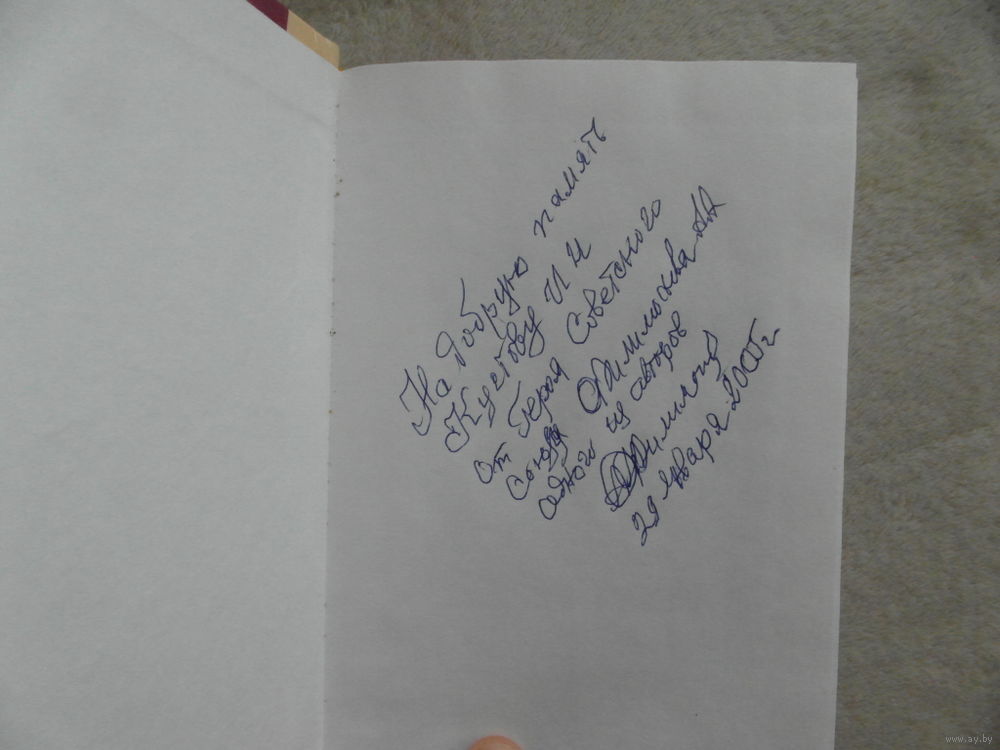 На добрую память
Кустову И И
от Героя Советского
Союза Филимонова А А
одного из авторов
29 января 2000 г
www.ay.by